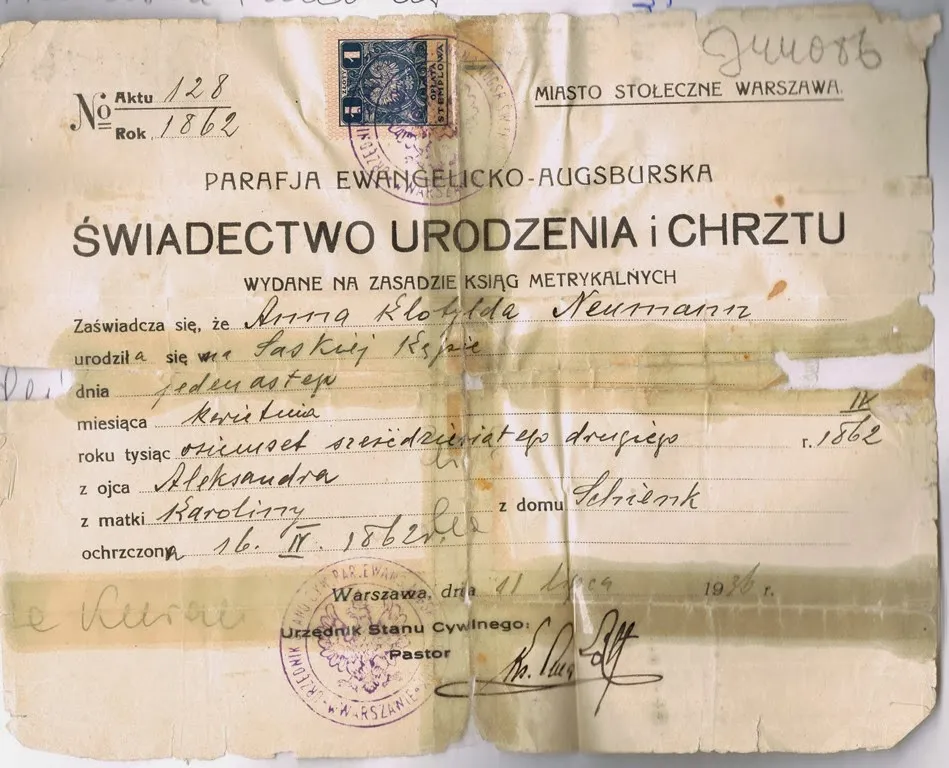 No Aktu 128
Rok 1862
1
ZŁOTY
OPŁATA
STEMPLOWA
MIASTO STOŁECZNE WARSZAWA.
PARAFJA EWANGELICKO-AUGSBURSKA
ŚWIADECTWO URODZENIA i CHRZTU
WYDANE NA ZASADZIE KSIĄG METRYKALNYCH
Zaświadcza się, że Anna Klotylda Neumann
urodziła się na Saskiej Kępie
dnia jedenastego
miesiąca kwietnia IV
roku tysiąc osiemset sześćdziesiątego drugiego r. 1862
z ojca Aleksandra
z matki Karoliny z domu Schienk
ochrzczona 16. IV. 1862 r.
Warszawa, dnia 11 lipca 1936 r.
Urzędnik Stanu Cywilnego:
Pastor
URZĘDNIK STANU CYW. PAR. EWANG. W WARSZAWIE